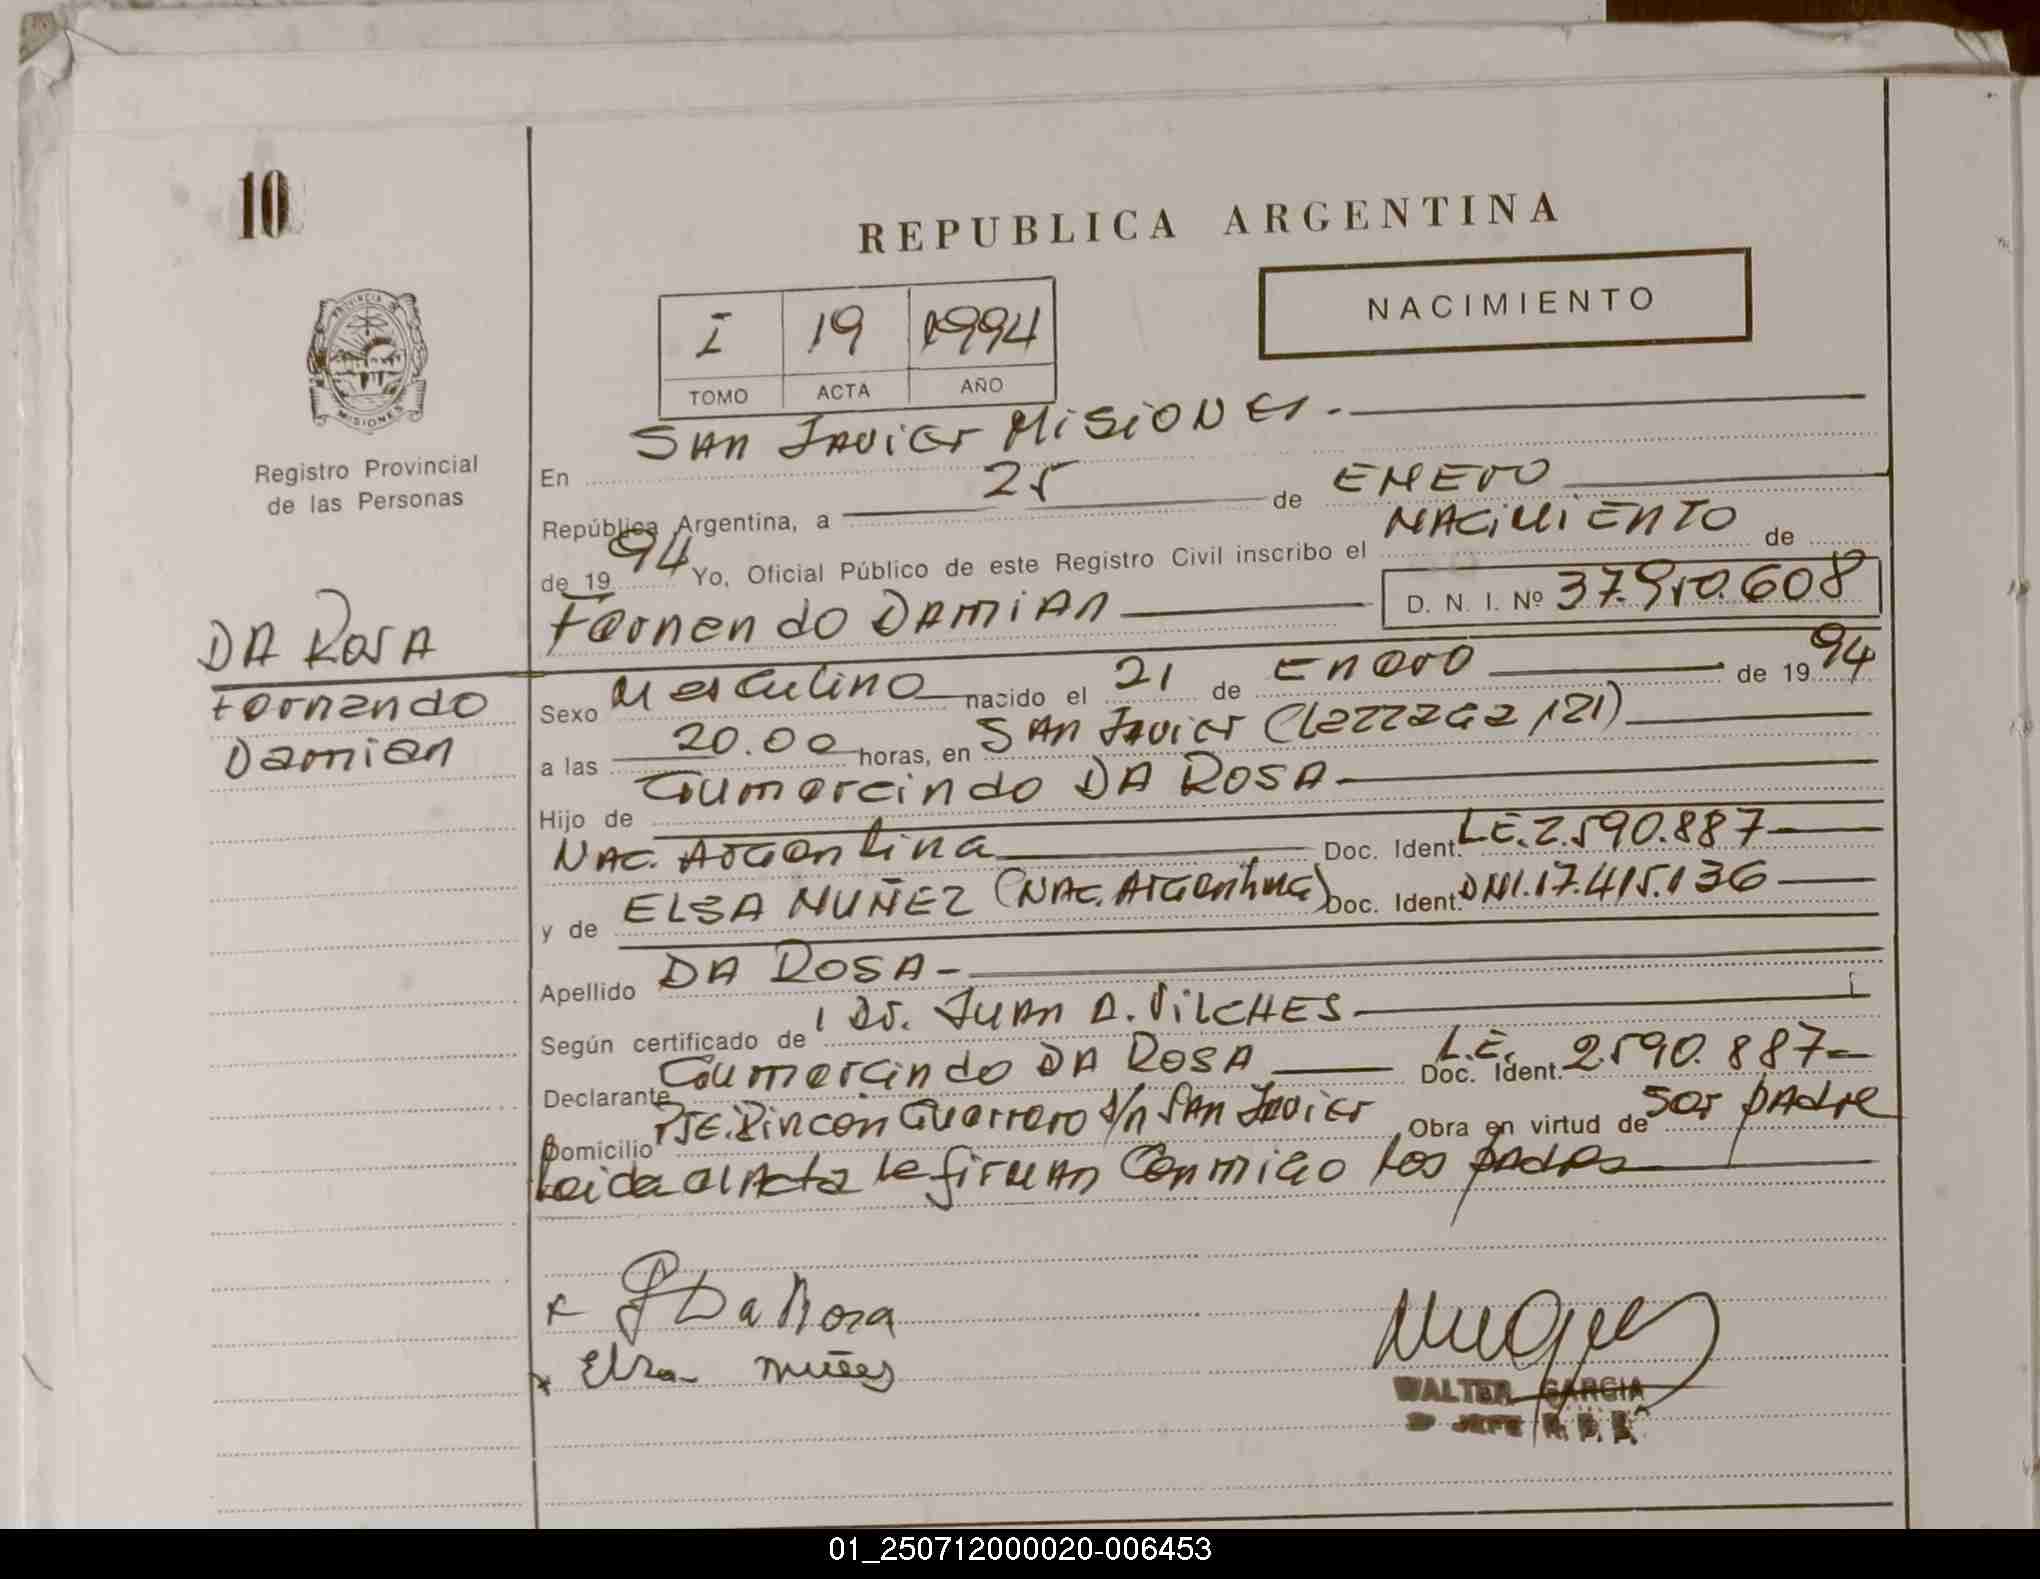 10
REPUBLICA ARGENTINA
NACIMIENTO
I 19 1994
TOMO ACTA AÑO
PROVINCIA DE MISIONES
Registro Provincial
de las Personas
En SAN JAVIER MISIONES.-
República Argentina, a 25 de ENERO
de 1994 Yo, Oficial Público de este Registro Civil inscribo el NACIMIENTO de
Fernando DAMIAN D. N. I. Nº 37.910.608
DA ROSA
Fernando
Damian
Sexo Masculino nacido el 21 de Enero de 1994
a las 20.00 horas, en SAN Javier (Lezzaga 121)
Hijo de Gumercindo DA ROSA-
NAC. Argentina Doc. Ident. LE.2.590.887
y de ELSA NUÑEZ (NAC. Argentina) Doc. Ident. DNI.17.415.136
Apellido DA ROSA-
Según certificado de Dr. JUAN A. VILCHES
Declarante Gumercindo DA ROSA L.E. Doc. Ident. 2.590.887-
Domicilio PJE. Rincón Guerrero S/n SAN Javier Obra en virtud de ser padre
Leida el Acta la firman Conmigo los padres
x G Da Rosa
x Elsa nuñes
WALTER GARCIA
JEFE R. P.
01_250712000020-006453